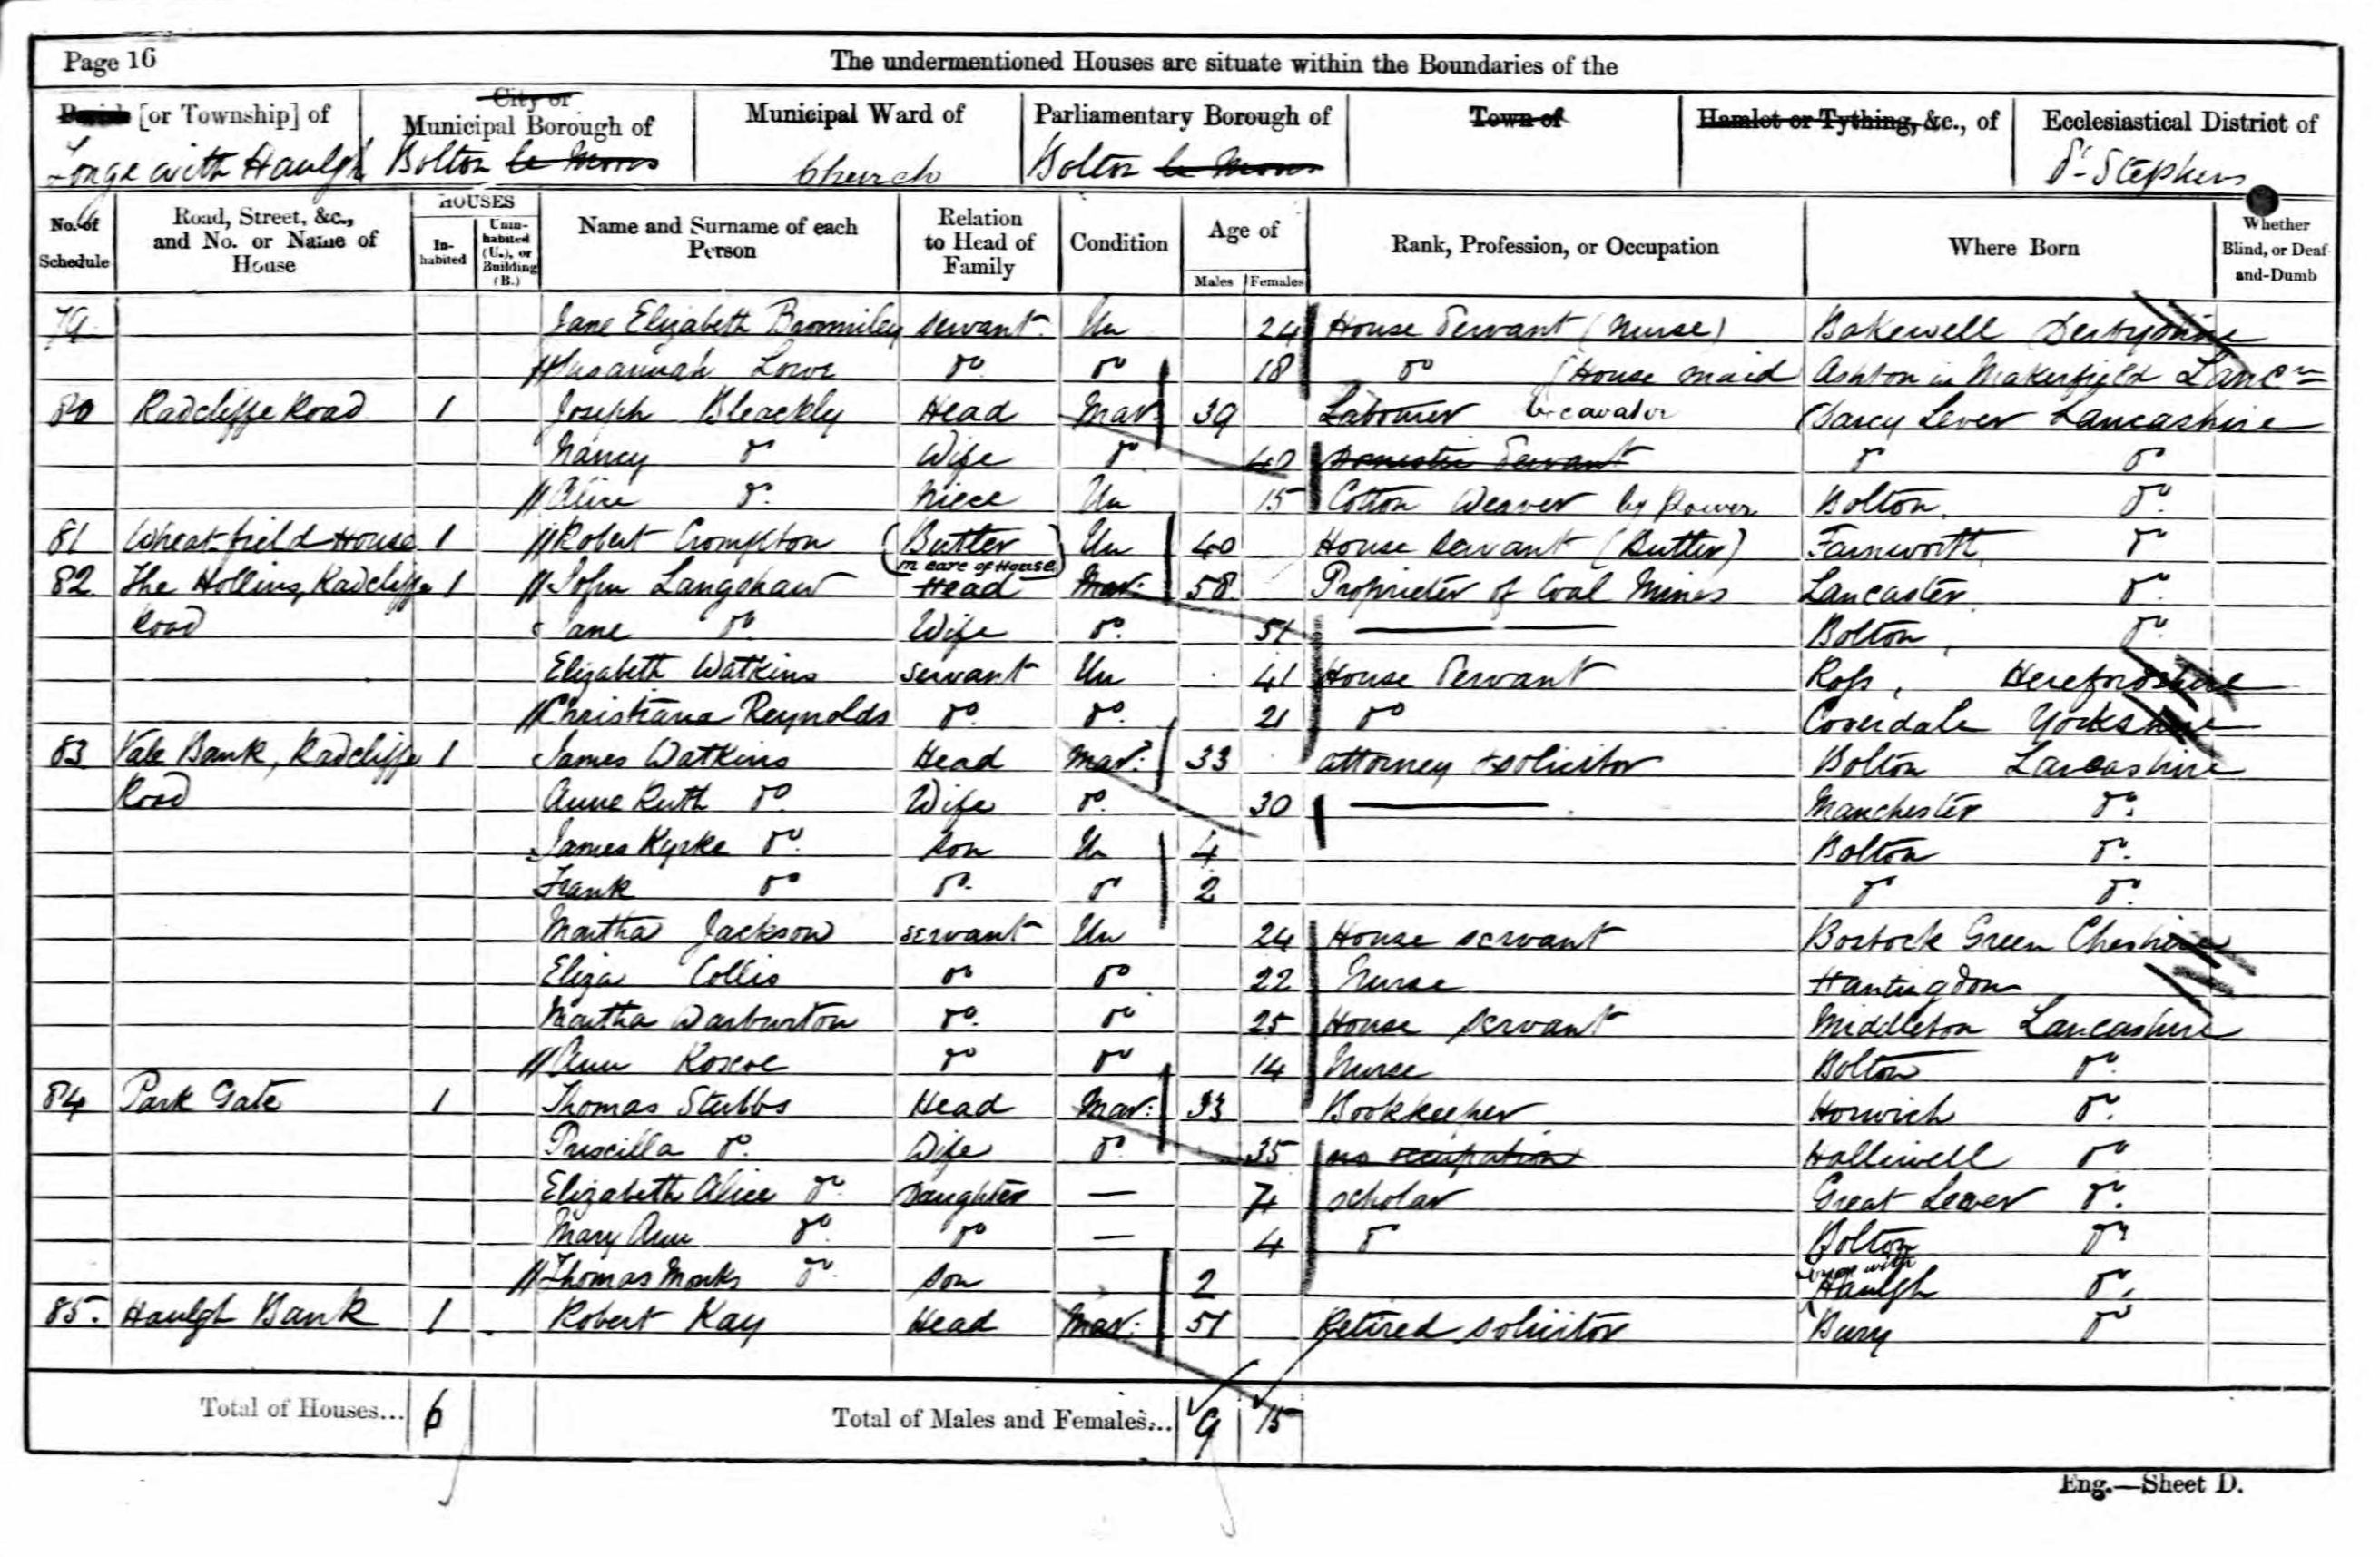 Page 16
The undermentioned Houses are situate within the Boundaries of the
Parish [or Township] of
City or
Municipal Borough of
Municipal Ward of
Parliamentary Borough of
Town of
Hamlet or Tything, &c., of
Ecclesiastical District of
Tonge with Haulgh
Bolton le Moors
Church
Bolton le Moors
St Stephens
No. of Schedule
Road, Street, &c., and No. or Name of House
HOUSES
In-habited
Unin-habited (U.), or Building (B.)
Name and Surname of each Person
Relation to Head of Family
Condition
Age of
Males
Females
Rank, Profession, or Occupation
Where Born
Whether Blind, or Deaf-and-Dumb
79 Jane Elizabeth Bromiley servant Un 24 House Servant (Nurse) Bakewell Derbyshire
Susannah Lowe Do Do 18 Do (House maid Ashton in Makerfield Lancre
80 Radcliffe Road 1 Joseph Bleackly Head Mar: 39 Labourer Excavator Darcy Lever Lancashire
Nancy Do Wife Do 40 Domestic Servant Do Do
Alice Do. Niece Un 15 Cotton Weaver by Power Bolton. Do.
81 Wheatfield House 1 Robert Crompton (Butler in care of House) Un 40 House Servant (Butler) Farnworth, Do
82 The Hollins, Radcliffe 1 John Langshaw Head Mar: 58 Proprietor of Coal Mines Lancaster Do.
Road Jane Do. Wife Do. 51 Bolton, Do
Elizabeth Watkins servant Un 41 House Servant Ross, Herefordshire
Christiana Reynolds Do. Do. 21 Do Coverdale Yorkshire
83 Vale Bank, Radcliffe 1 James Watkins Head Mar: 33 attorney & solicitor Bolton Lancashire
Road Anne Ruth Do. Wife Do. 30 Manchester Do.
James Kyrke Do. Son Un 4 Bolton Do.
Frank Do Do. Do 2 Do Do.
Martha Jackson servant Un 24 House servant Bostock Green Cheshire
Eliza Collis Do Do 22 Nurse Huntingdon
Martha Warburton Do. Do 25 House servant Middleton Lancashire
Ann Roscoe Do Do 14 Nurse Bolton Do.
84 Park Gate 1 Thomas Stubbs Head Mar: 33 Bookkeeper Horwich Do.
Priscilla Do. Wife Do 35 no occupation Halliwell Do
Elizabeth Alice Do. Daughter — 7 scholar Great Lever Do.
Mary Ann Do. Do — 4 Do Bolton Do
Thomas Marks Do. Son 2 Tonge with Haulgh Do.
85. Haulgh Bank 1 Robert Kay Head Mar: 51 Retired solicitor Bury Do
Total of Houses... 6
Total of Males and Females... 9 15
Eng.—Sheet D.